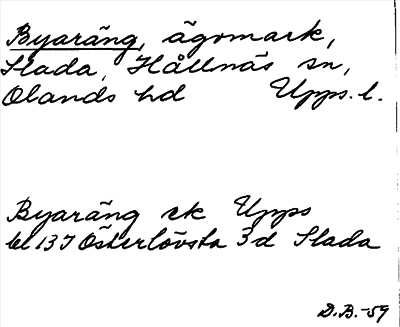 Byaräng, ägomark,
Slada, Hållnäs sn,
Olands hd Upps. l.
Byaräng ek Upps
bl 137 Österlövsta 3d Slada
D.B.-59